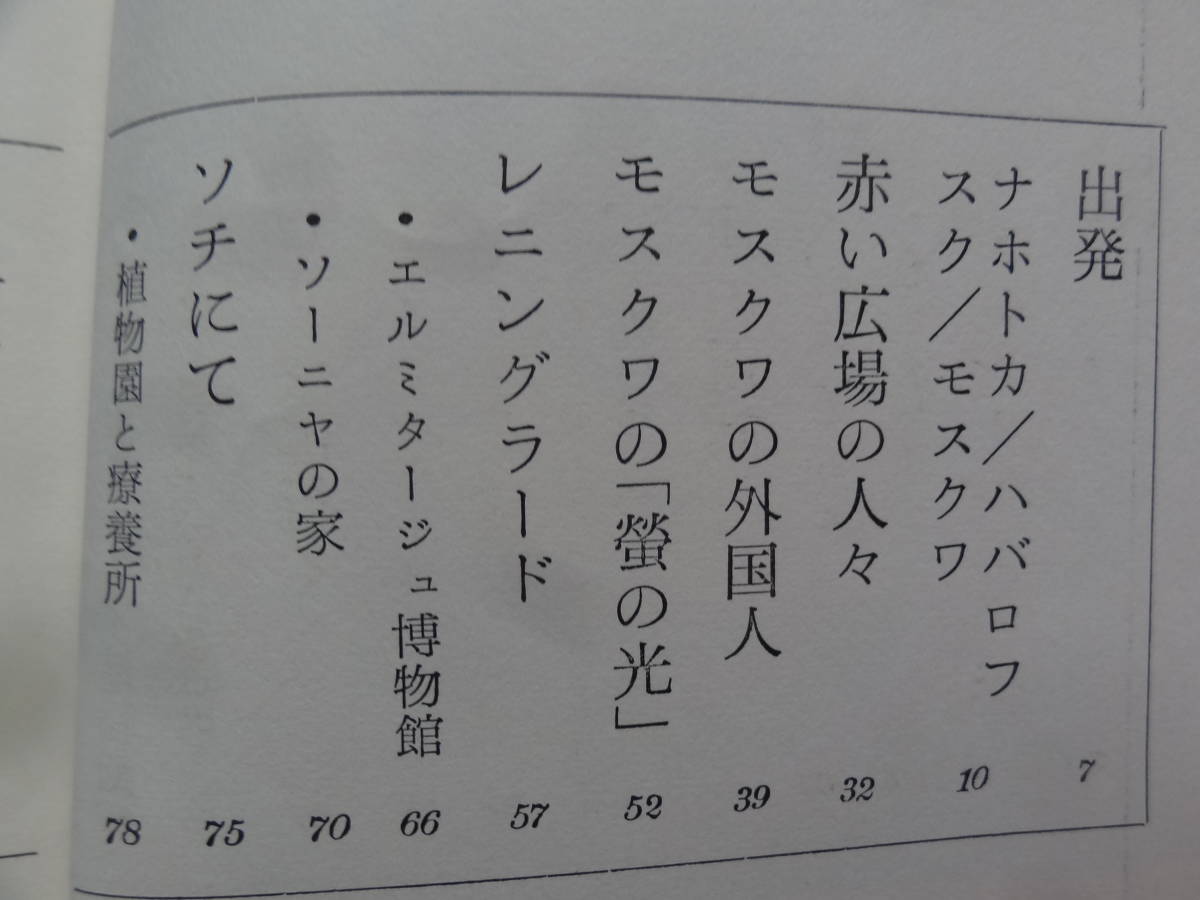 出発
7
ナホトカ／ハバロフ
スク／モスクワ
10
赤い広場の人々
32
モスクワの外国人
39
モスクワの「螢の光」
52
レニングラード
57
・エルミタージュ博物館
66
・ソーニャの家
70
ソチにて
75
・植物園と療養所
78